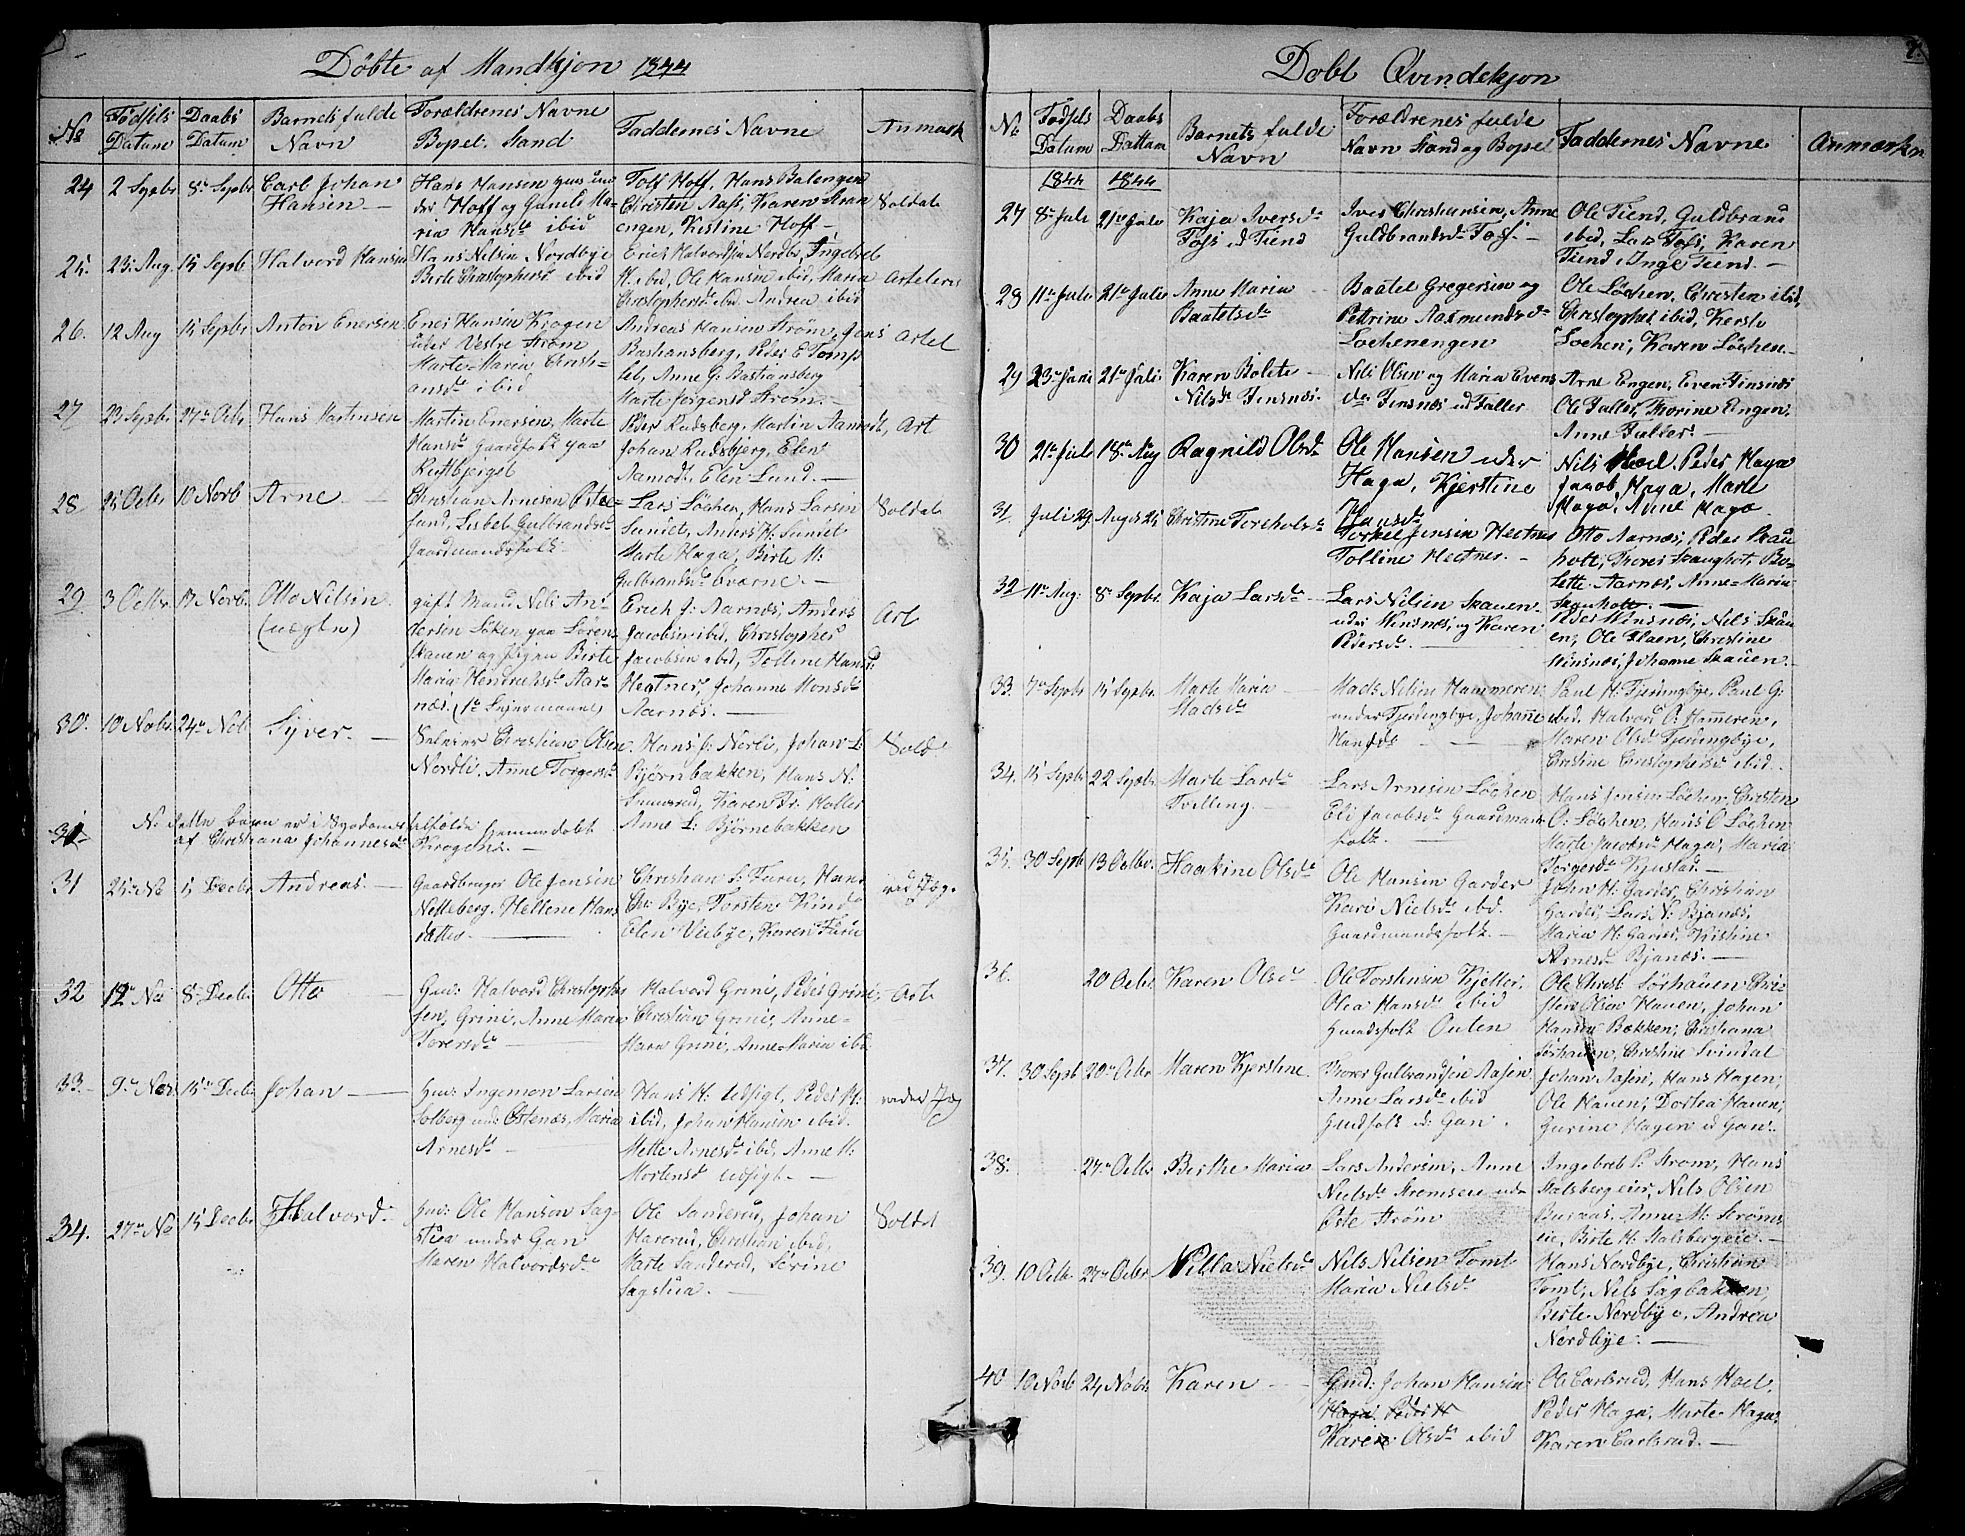 Døbte af Mandkjøn 1844
No
Fødsels Datum
Daabs Datum
Barnets fulde Navn
Forældrenes Navne
Bopel. Stand
Faddernes Navne
Anmærk
24 2 Sepbr 8de Sepbr Carl Johan
Hansen
Hans Hansen
Hoff og
Hansdr ibid
Hoff, Hans
Christen Aas, Karen
engen, Kistine Hoff
Soldat
25. 23 Aug 15 Sepb Halvord Hansen
Hans Nilsen Nordbye
Berte Christophersd ibid
Erich Halvordsen Nordb, Ingebreb
H. ibid, Ole Hansen ibid, Maria
Christophersdr ibd Andrea ibid
26. 12 Aug 15 Sepbr Anton Enersen
Ener Hansen Krogen
under Vestre Strøm
Marte Maria Christi-
ansdr ibid
Andreas Hansen Strøm,
Bastiansberg, Peder E Tomp
Anne G: Bastiansberg
Marte Jørgensd Strøm.
Artel
27 23 Sepbr 27de Ocbr Hans Martinsen
Martin Enersen, Marte
Hansdr Gaardfolk paa
Peder Rudsberg, Martin Aamodt,
Johan Rudsbjerg, Elen
Aamodt, Elen Lund.
Art
28 25 Octbr 10 Novb Arne
Christian Arnesen
Lisbet Gulbrandsdr
Gaardmandsfolk
Lars Løchen, Hans Larsen
Sundet, Anders H: Sundet
Marte Haga, Birte M:
Gulbrandsdr
Soldat
29 3 Octbr 17 Novb. Otto Nilsen
(uægte)
gift Mand Nils An-
dersen Løken paa Søren
Skauen og Pigen Birte
Maria Hendriksdr Aar-
næs.
Erich J: Aarnæs, Anders
Jacobsen ibid, Christopher
Jacobsen ibid, Tolline Hansd:
Hegtner, Johanne Monsdr
Aarnæs.
Art
30. 10 Novbr. 24de Nob Syver.
Christian Olsen
Nordli, Anne Torgersdr
Hans J: Nordli, Johan L:
Bjørnbakken, Hans N:
Karen Moller
Anne L: Bjørnebakken
Sold
31 N: dette barn er i hjemmedøbt
af Christiana Johannesdr Krogen.
31 25de No 15 Decbr Andreas.
Gaardbruger Ole Jensen
Netteberg. Hellene Hans
datter
Christian L: Furu, Hans
Chr Bye, Torsten Kind
Elen Viebye, Karen Furu
32 12te No 8de Decbr Otto
Halvord Christophers
sen, Grini, Anne Maria
Toresdr
Halvord Grini, Peder Grini,
Christian Grini, Anne
Mara Grini, Anne Maria ibd.
Art
33. 9de Nov 15de Decbr Johan
Ingemon Larsen
Solberg und Østenæs, Maria
Arnesdr
Hans H: Udsigt, Peder H:
ibid, Johan Hansen ibid.
Mette Arnesdr ibd, Anne M:
Mortensd Udsigt.
34. 27de No 15 Decbr Halvord
Ole Hansen Sag-
stua under Gan
Maren Halvordsdr
Ole Sanderud, Johan
Harerud, Christian ibid,
Marte Sanderud, Serine
Sagstua.
Soldt
Døbt Qvindekjøn
No
Fødsels Datum
Daabs Dattum
Barnets fulde
Navn
Forældrenes fulde
Navn Stand og Bopel
Faddernes Navne
Anmærkn
1844 1844
27 8de Juli 21de Juli Kaja Iversdr
Foss ud Tiend
Iver Christiansen, Anne
Guldbrandsdr Foss.
Ole Tiend, Guldbrand
ibid, Lars Foss, Karen
Tiend, Inge Tiend.
28 11te Juli 21de Julie Anne Maria
Baatelsdr
Baatel Gregersen og
Petrine Rasmundsdr
Lochenengen
Ole Løchen, Christen ibid,
Christopher ibid, Kersto
Lochen, Karen Løchen.
29 23de Juni 21de Juli Karen Bolete
Nilsdr Finsnæs.
Nils Olsen og Maria Evens
dr Finsnæs ud Faller
Arne Engen, Even Finsnæs
Ole Faller, Thorine Engen,
Anne Faller.
30 21de Juli 18de Aug Ragnild Olsdr
Ole Hansen under
Haga, Kjerstine
Hansdr
Nils Hoel, Peder Haga
Jacob Haga, Marte
Haga, Anne Haga.
31. Juli 29 Augst 25 Christine Torkelsdr
Torkel Jensen Hectner
Tolline Hectner.
Otto Aarnæs, Peder Skau
holt, Thorer Skaugholt, Bo-
lette Aarnæs, Anne Maria
Skauholt.
32 11te Aug: 8de Sepbr. Kaja Larsdr
Lars Nilsen Skauen
under Winsnæs, og Karen
Pedersdr.
Peder Winsnæs, Nils Skau
en, Ole Haen, Christine
Winsnæs, Johanne Skauen.
33. 7de Sepbr 15 Sepbr. Marte Maria
Madsdr
Mads Nilsen Hammeren
under Fjerdingbye, Johanne
Hansdr
Paul H: Fjerdingbye, Paul G:
ibid. Halvord O: Hammeren,
Maren Olsdr Fjerdingbye,
Christine Christophersdr ibid.
34. 15 Sepbr 22 Sepbr. Marte Larsdr
Tvilling.
Lars Arnesen Løchen
Eli Jacobsdr Gaardmands
folk.
Hans Jensen Løchen, Christen
O: Løchen, Hans O Løchen
Marte Jacobsdr Haga, Maria
Torgersdr Kjustad.
35. 30 Sepb 13 Octbr. Haakine Olsdr
Ole Hansen Garder
Kari Nielsdr ibd.
Gaardmandsfolk.
John H: Garder, Christian
Garder, Lars N: Bjanæs,
Maria H: Garder, Kistine
Arnesdr Bjanæs.
36. 20 Octbr Karen Olsdr
Ole Torstensen Kjelter,
Olea Hansdr ibid
Huusfolk Outen
Ole Christ Sørhauen Chri-
sten Olsen Hauen, Johan
Hansen Bækken, Christiana
Sørhauen, Christine Svindal
37. 30 Sepb 20de Octbr Maren Kjerstine.
Thorer Gulbrandsen Aasen
Anne Larsdr ibid
Huusfolk u: Gan.
Johan Aasen, Hans Hagen,
Ole Hauen, Dortea Hauen,
Gurine Hagen u Gan.
38. 27de Octbr Berthe Maria
Lars Andersen, Anne
Nielsdr Strømseie und
Øste Strøm
Ingebret P: Strøm, Hans
Stalsberg eier, Nils Olsen
Buraas, Anne M: Strøms
eie, Birte H: Stalsbergeie.
39. 10 Octb 27de Octbr Nilla Nielsdr
Nils Nilsen Tomt
Maria Nielsdr
Hans Nordbye, Christian
Tomt, Nils Sagbakken,
Birte Nordbye, Andrea
Nordbye.
40 10 Novb 24 Nobr. Karen
Gmd: Johan Hansen
Haga Peder H
Karen Olsdr ibid
Ole Carlsrud, Hans Hoel,
Peder Haga, Marte Haga,
Karen Carlsrud.